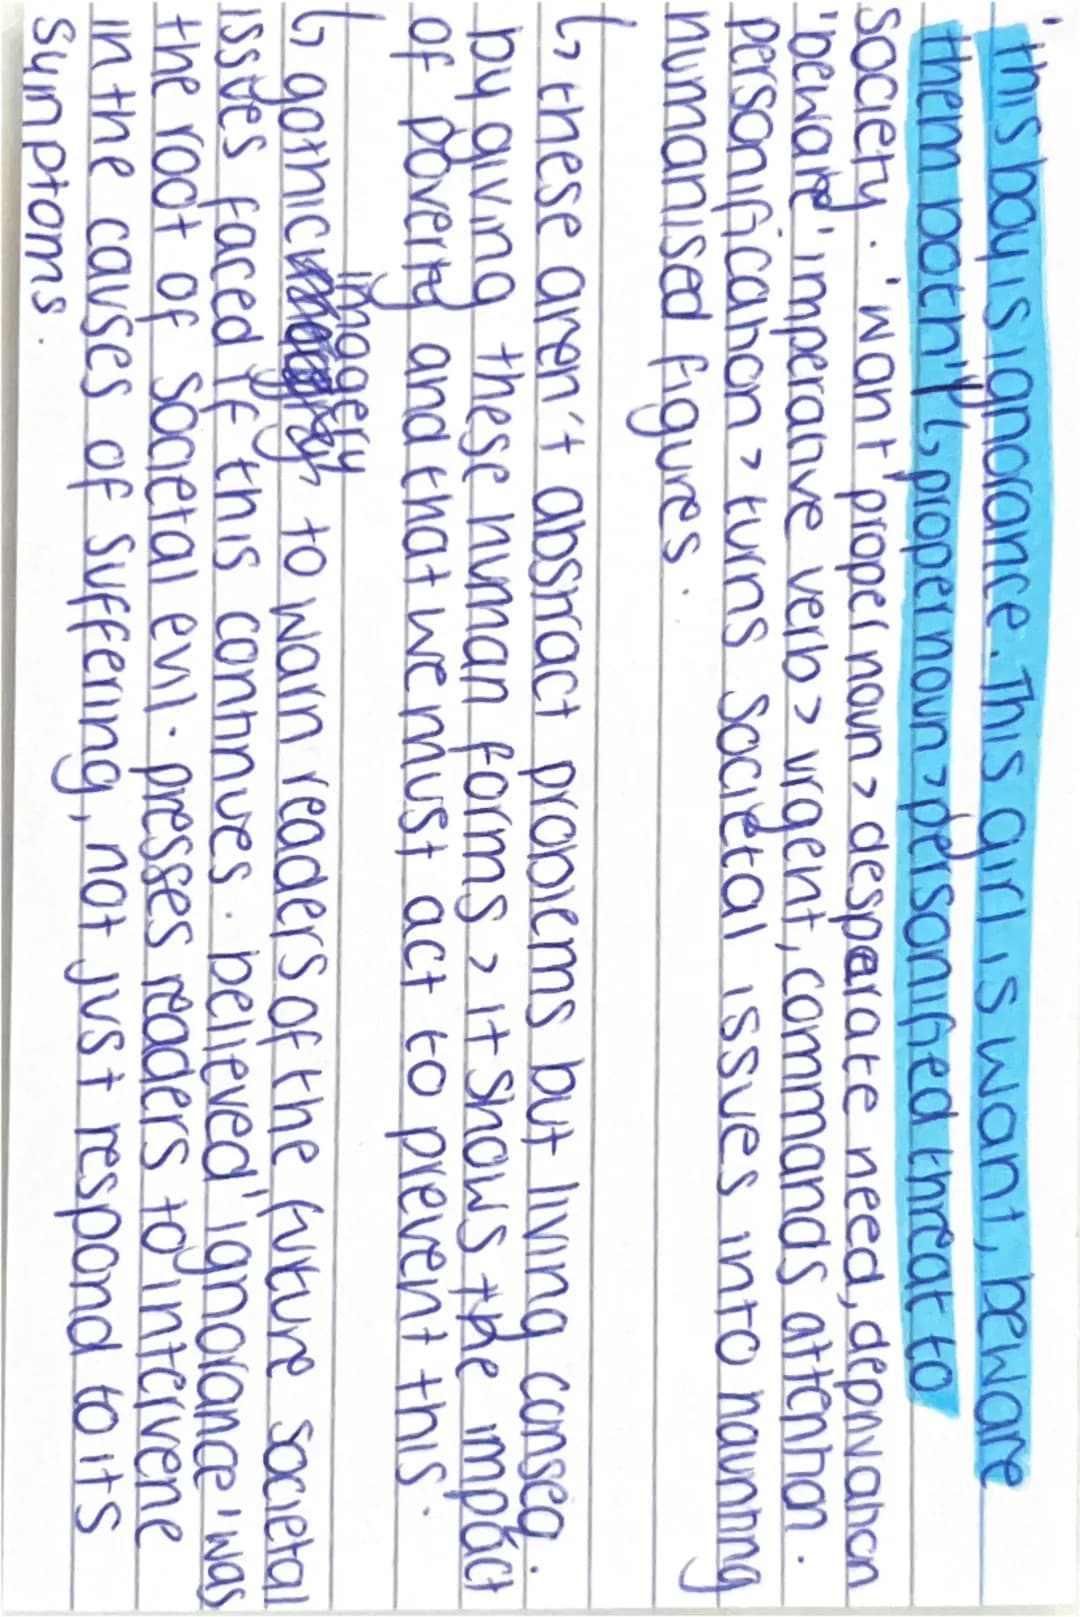 'this boy is ignorance. This girl is want, beware
them both'↳ proper noun > personified threat to
society. 'want' proper noun > desparate need, deprivation
'beware' imperative verb > urgent, commands attention.
personification > turns societal issues into haunting
humanised figures.
↳ these aren't abstract problems but living conseq.
by giving these human forms > it shows the impact
of poverty and that we must act to prevent this.
↳ gothic imagery to warn readers of the future societal
issues faced if this continues. believed 'ignorance' was
the root of societal evil. presses readers to intervene
in the causes of suffering, not just respond to its
symptoms.